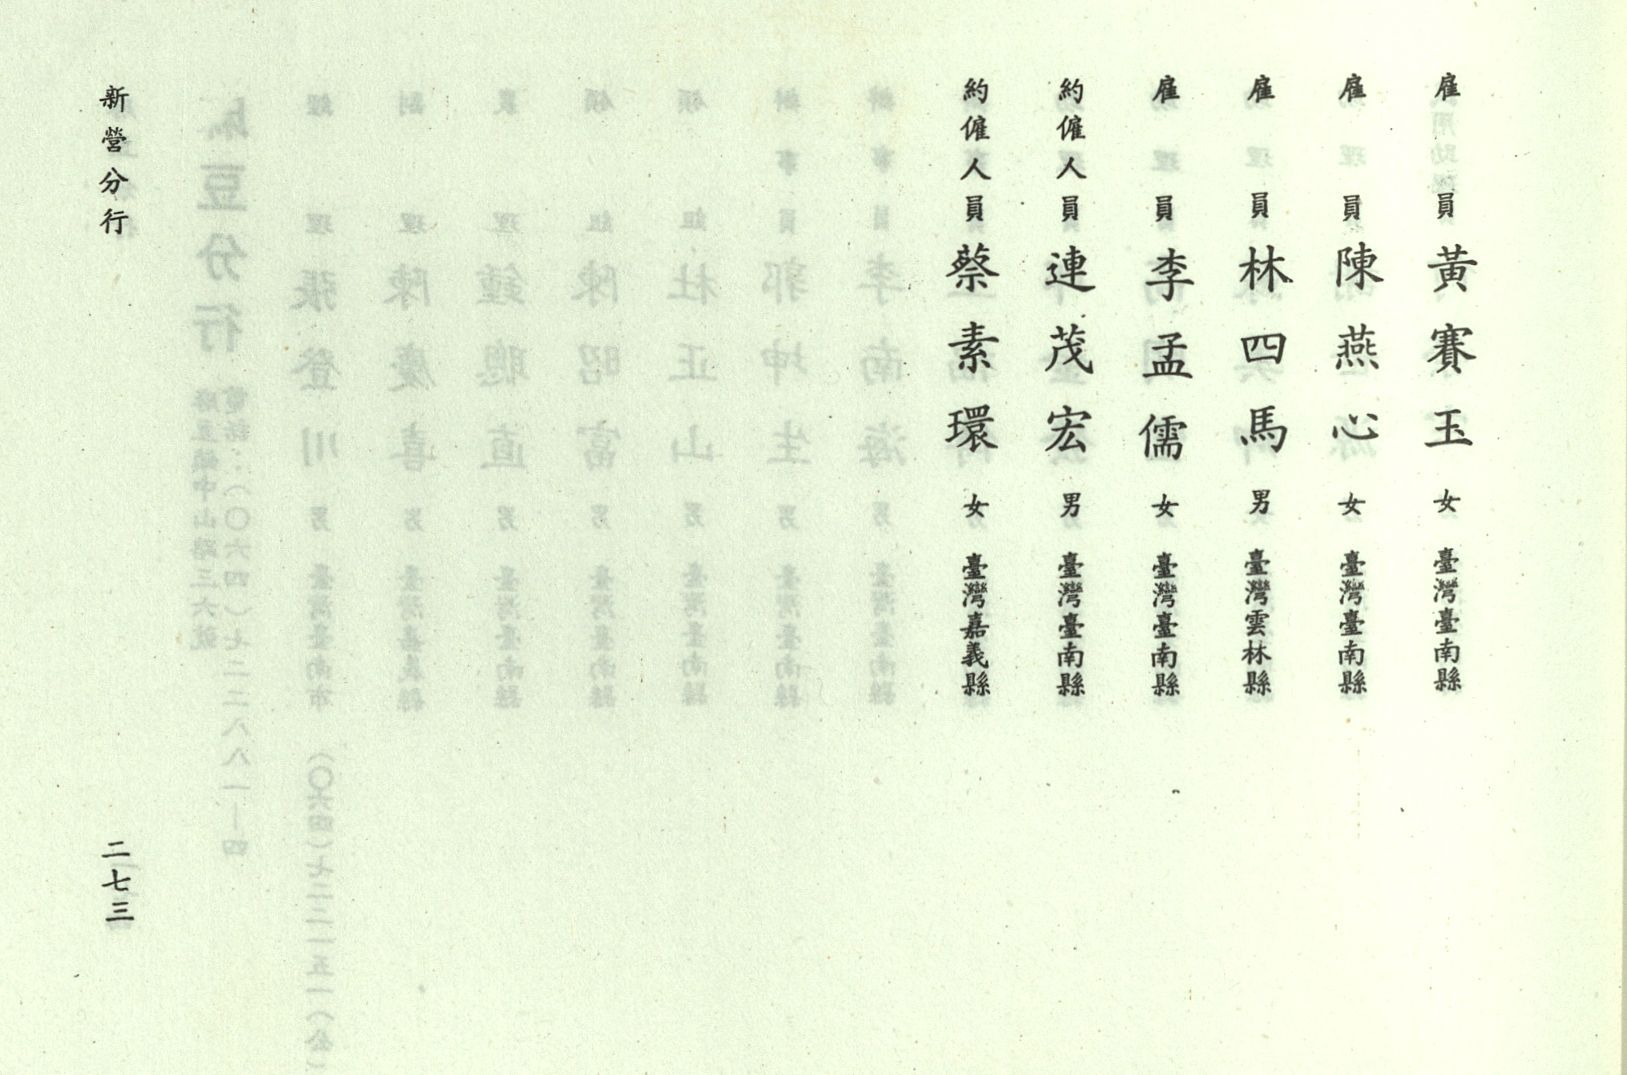 雇員黃賽玉女臺灣臺南縣
雇員陳燕心女臺灣臺南縣
雇員林四馬男臺灣雲林縣
雇員李孟儒女臺灣臺南縣
約僱人員連茂宏男臺灣臺南縣
約僱人員蔡素環女臺灣嘉義縣
新營分行
二七三